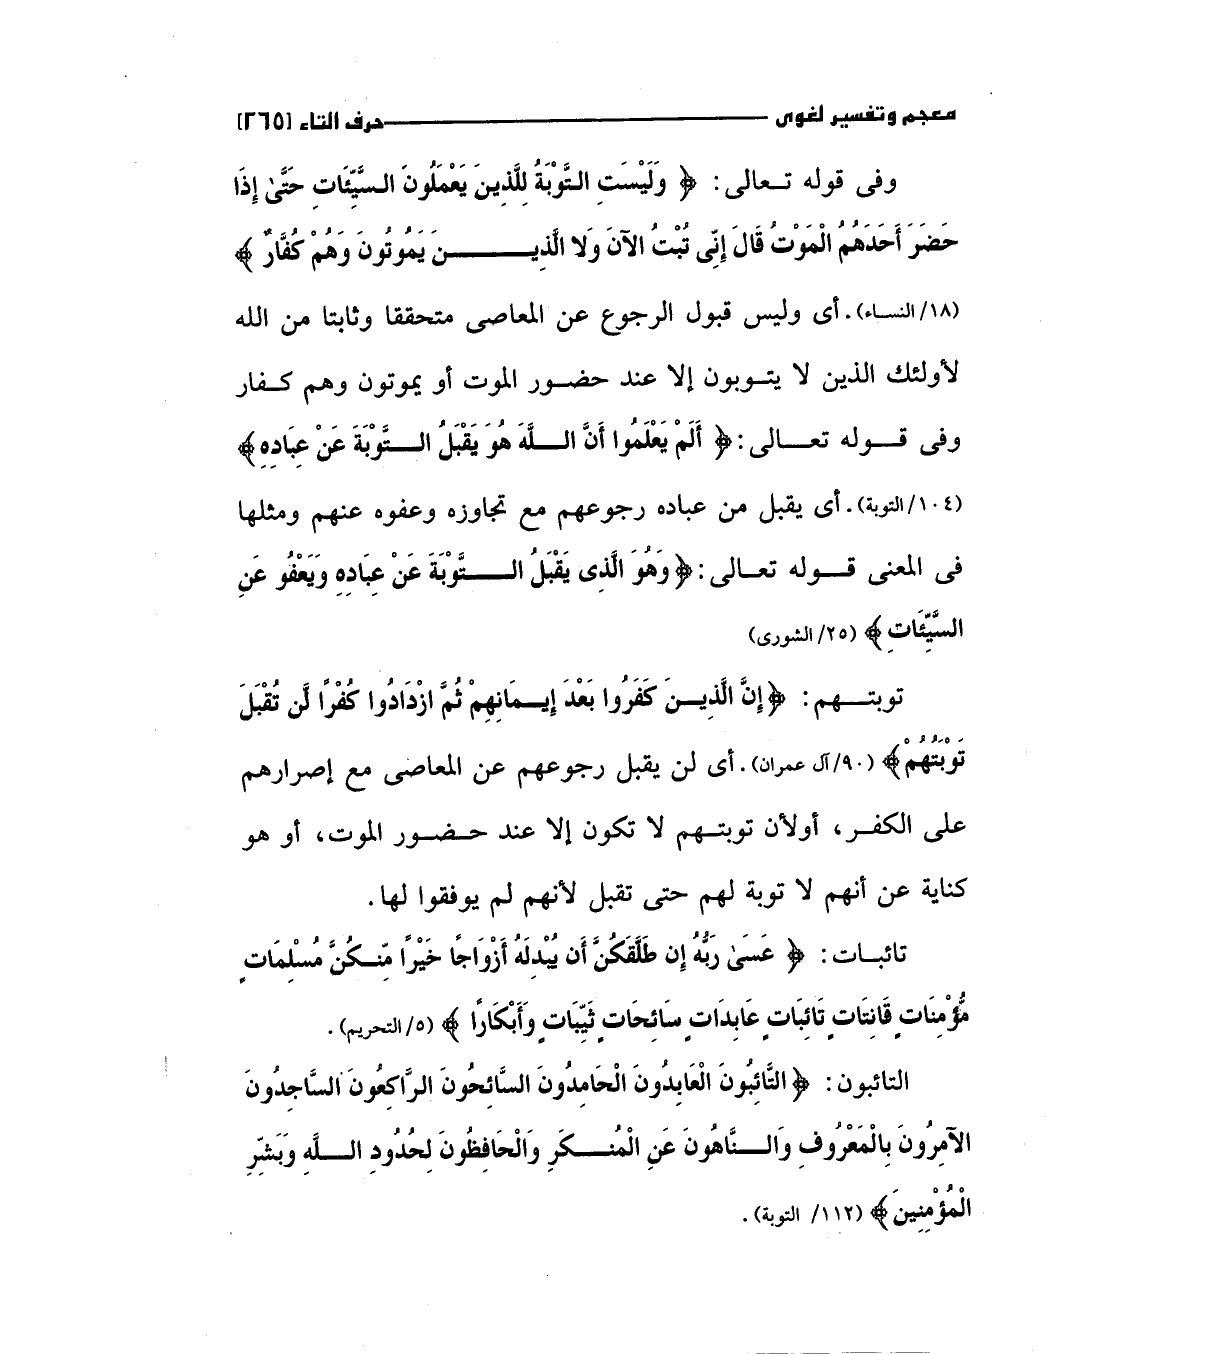 معجم وتفسير لغوى ــــــــــ حرف التاء [٢٦٥]
وفى قوله تعالى: ﴿ وَلَيْسَتِ التَّوْبَةُ لِلَّذِينَ يَعْمَلُونَ السَّيِّئَاتِ حَتَّىٰ إِذَا
حَضَرَ أَحَدَهُمُ الْمَوْتُ قَالَ إِنِّى تُبْتُ الآنَ وَلا الَّذِينَ يَمُوتُونَ وَهُمْ كُفَّارٌ ﴾
(١٨/النساء). أى وليس قبول الرجوع عن المعاصى متحققا وثابتا من الله
لأولئك الذين لا يتوبون إلا عند حضور الموت أو يموتون وهم كفار
وفى قوله تعالى: ﴿ أَلَمْ يَعْلَمُوا أَنَّ اللَّهَ هُوَ يَقْبَلُ التَّوْبَةَ عَنْ عِبَادِهِ ﴾
(١٠٤/التوبة). أى يقبل من عباده رجوعهم مع تجاوزه وعفوه عنهم ومثلها
فى المعنى قوله تعالى: ﴿ وَهُوَ الَّذِى يَقْبَلُ التَّوْبَةَ عَنْ عِبَادِهِ وَيَعْفُو عَنِ
السَّيِّئَاتِ ﴾ (٢٥/ الشورى)
توبتهم: ﴿ إِنَّ الَّذِينَ كَفَرُوا بَعْدَ إِيمَانِهِمْ ثُمَّ ازْدَادُوا كُفْرًا لَّن تُقْبَلَ
تَوْبَتُهُمْ ﴾ (٩٠/آل عمران). أى لن يقبل رجوعهم عن المعاصى مع إصرارهم
على الكفر، أولأن توبتهم لا تكون إلا عند حضور الموت، أو هو
كناية عن أنهم لا توبة لهم حتى تقبل لأنهم لم يوفقوا لها.
تائبات: ﴿ عَسَىٰ رَبُّهُ إِن طَلَّقَكُنَّ أَن يُبْدِلَهُ أَزْوَاجًا خَيْرًا مِّنكُنَّ مُسْلِمَاتٍ
مُّؤْمِنَاتٍ قَانِتَاتٍ تَائِبَاتٍ عَابِدَاتٍ سَائِحَاتٍ ثَيِّبَاتٍ وَأَبْكَارًا ﴾ (٥/ التحريم).
التائبون: ﴿ التَّائِبُونَ الْعَابِدُونَ الْحَامِدُونَ السَّائِحُونَ الرَّاكِعُونَ السَّاجِدُونَ
الآمِرُونَ بِالْمَعْرُوفِ وَالنَّاهُونَ عَنِ الْمُنكَرِ وَالْحَافِظُونَ لِحُدُودِ اللَّهِ وَبَشِّرِ
الْمُؤْمِنِينَ ﴾ (١١٢/ التوبة).